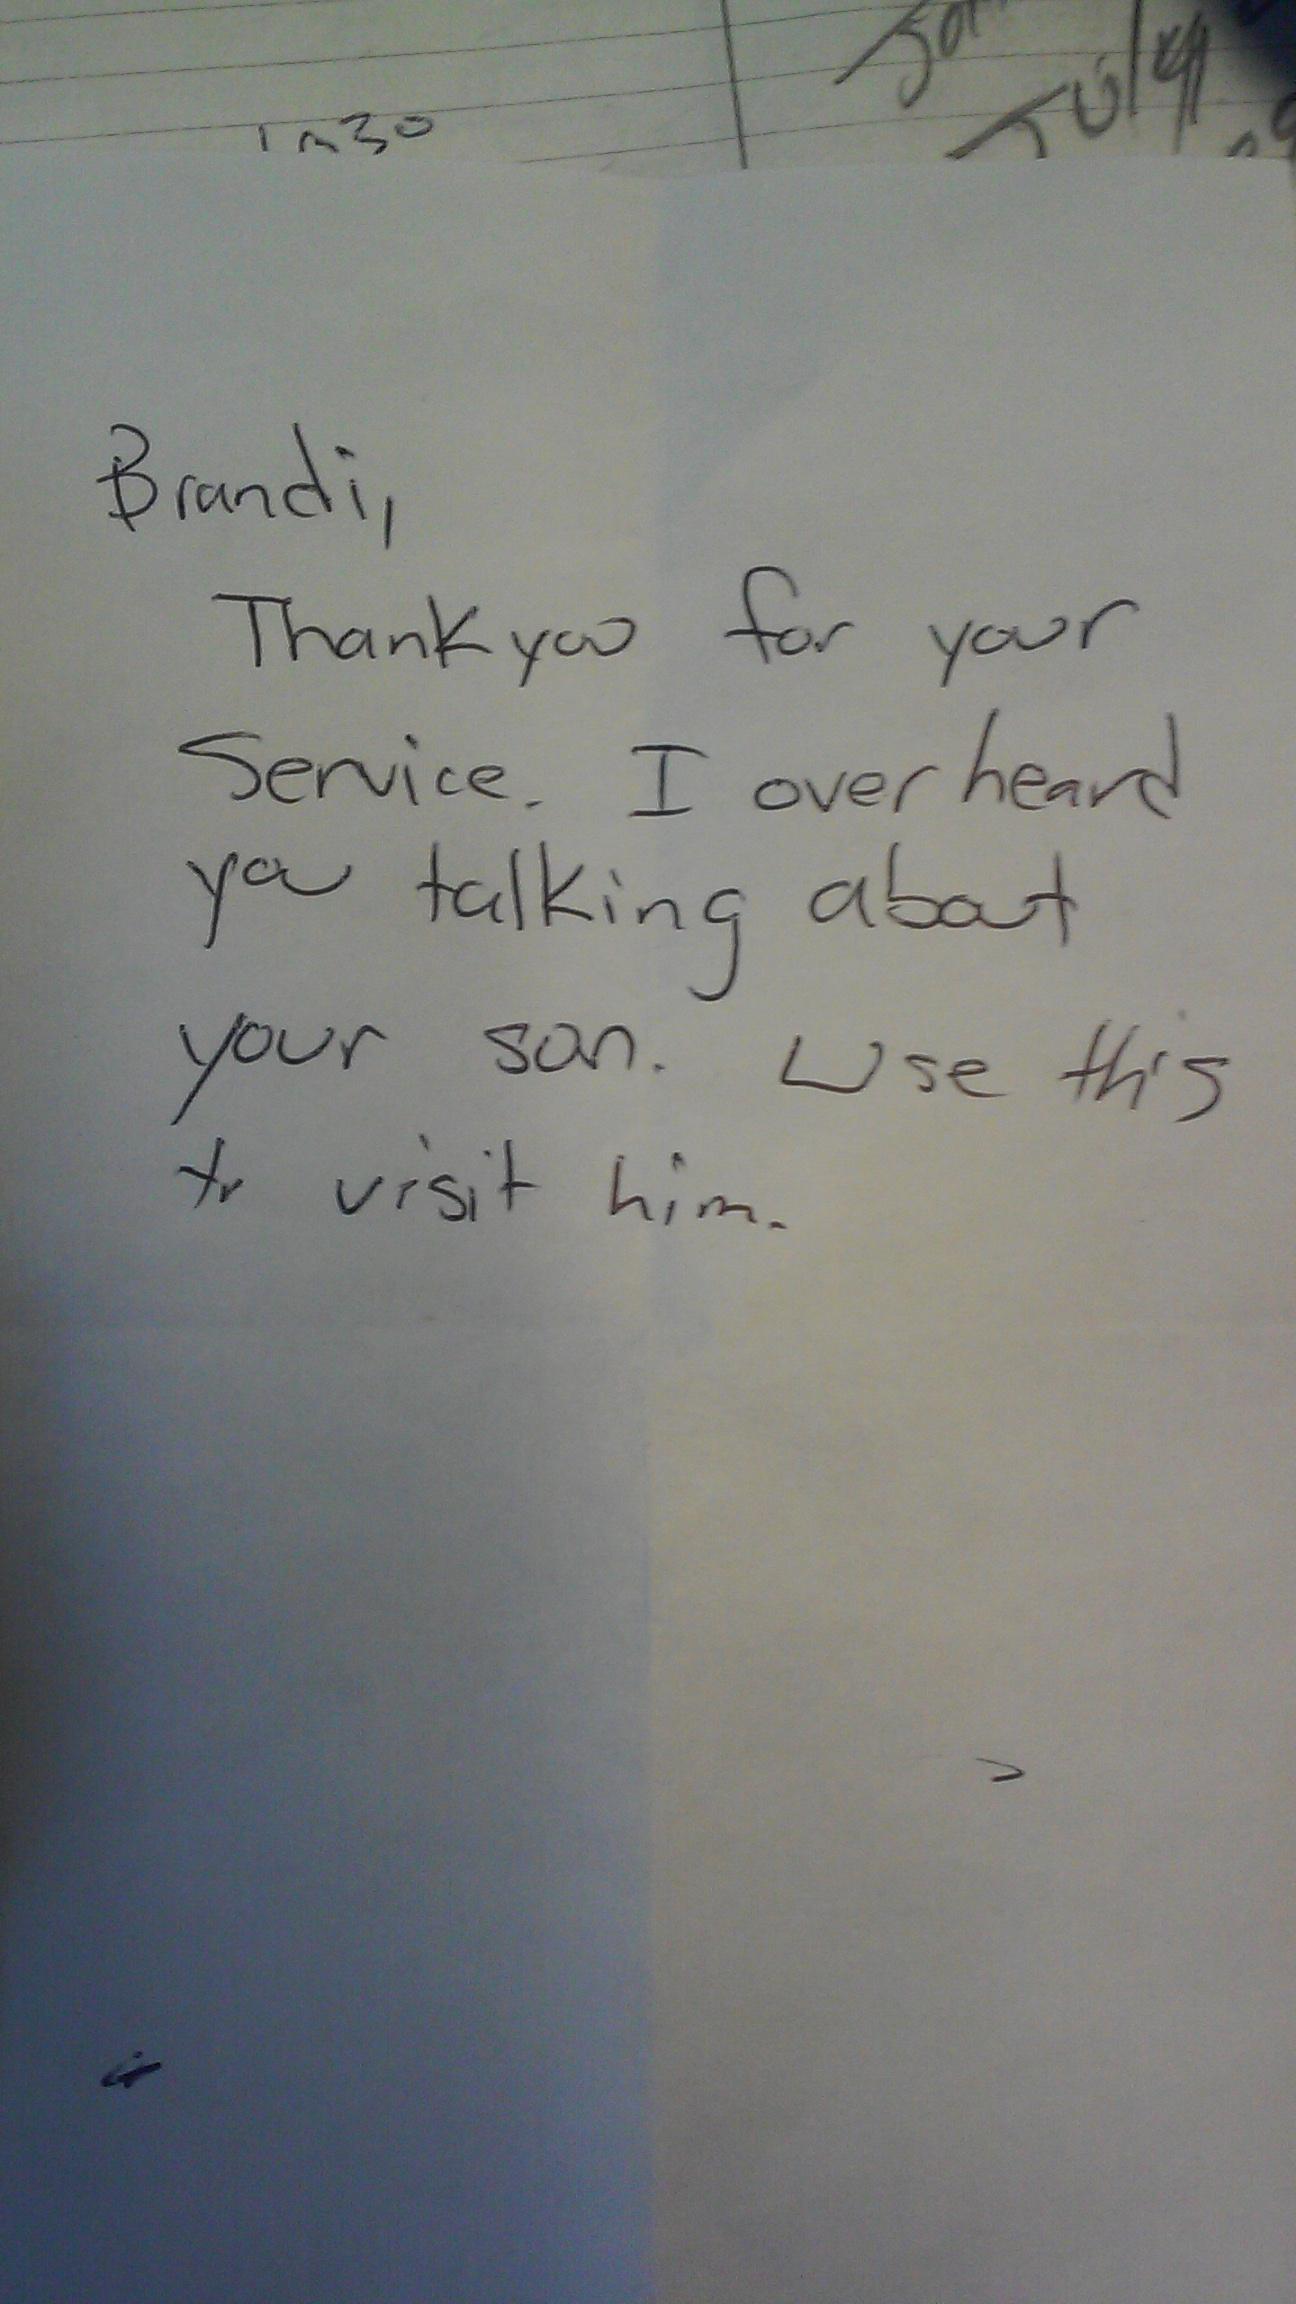 in 30
July
Brandi,
Thank you for your
Service. I overheard
you talking about
your son. Use this
to visit him.